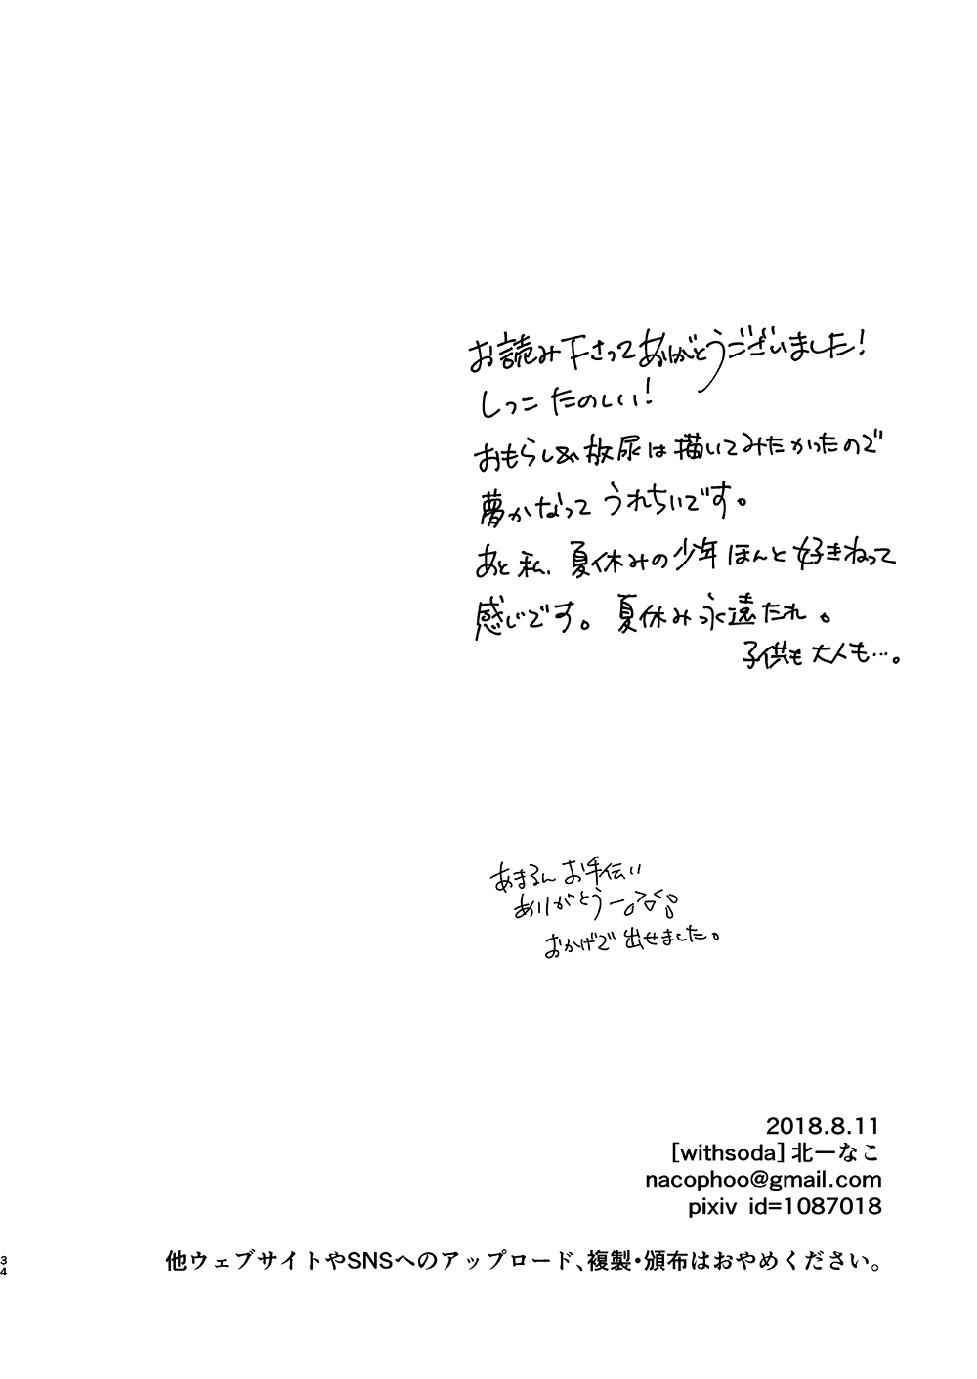 お読み下さってありがとうございました!
しっこ たのしい!
おもらし&放尿は描いてみたかったので
夢かなって うれちいです。
あと私、夏休みの少年ほんと好きねって
感じです。夏休み永遠たれ。
子供も大人も…。
あまるん お手伝い
ありがとうー
おかげで 出せました。
2018.8.11
[withsoda]北一なこ
nacophoo@gmail.com
pixiv id=1087018
他ウェブサイトやSNSへのアップロード、複製・頒布はおやめください。
34